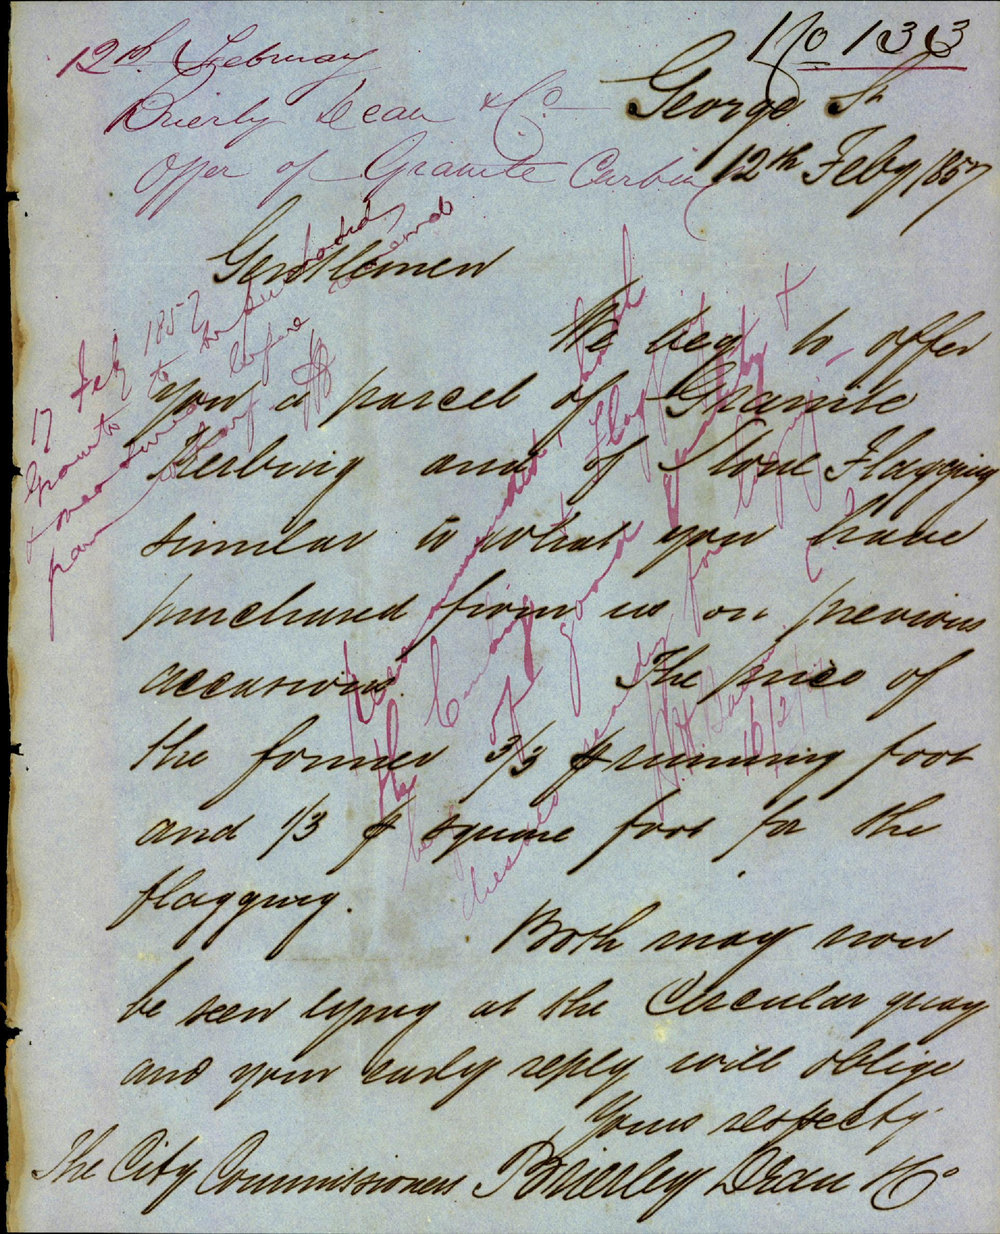 No 1363
12th February
Brierly Dean & Co
Offer of Granite Curbing
George St
12th Feby 1857
Gentlemen
We beg to offer
you a parcel of Granite
Kerbing and of Stone Flagging
similar to what you have
purchased from us on previous
occasions. The price of
the former 3/3 ⅌ running foot
and 1/3 ⅌ square foot for the
flagging.
Both may now
be seen lying at the Circular quay
and your early reply will oblige
Yours respecty
Brierley Dean & Co
The City Commissioners
17 Feby 1857
Granite to be purchased
& measured before
Recommended, both
the Curbing & Flagging
of good quality &
for
16/2/57